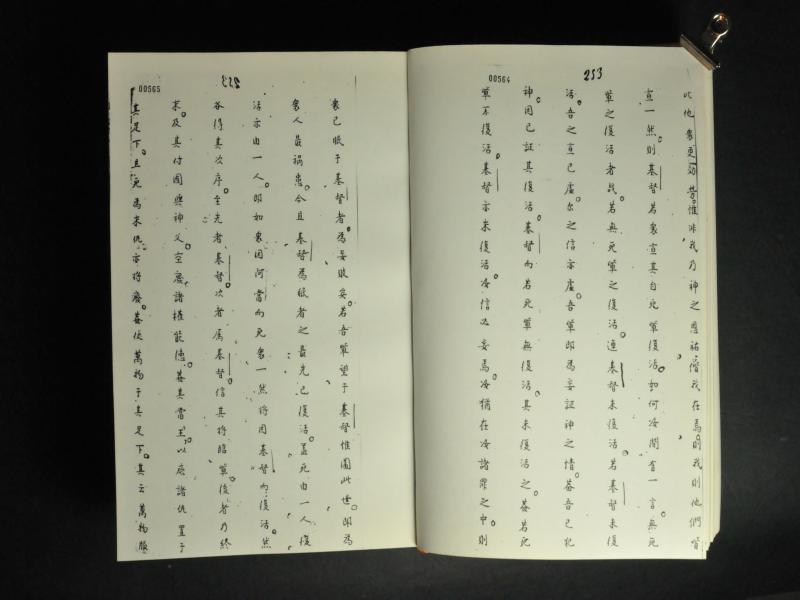 253
00564
此他衆更効勞惟非我乃神之恩祐偕我在焉則我則他們皆
宣一然則基督若衆宣其自死輩復活如何汝間有一言無死
輩之復活者哉若無死輩之復活連基督未復活若基督未復
活吾之宣已虛尔之信亦虛吾輩即為妄証神之情葢吾已犯
神因已証其復活基督而若死輩無復活其未復活之葢若死
輩不復活基督亦未復活汝信必妄焉汝猶在汝諸罪之中則
253
00565
衆已眠于基督者為妄敗矣若吾輩望于基督惟圖此世即為
衆人最禍患今且基督為眠者之最先已復活葢死由一人復
活亦由一人即如衆因阿當而死衆一然將因基督而復活然
各得其次序至先者基督次者属基督信其將臨輩後者乃終
末及其付國與神父空廢諸權能德葢其當王以磨諸仇置于
其足下且死為末仇亦將廢葢使萬物于其足下其云萬物服